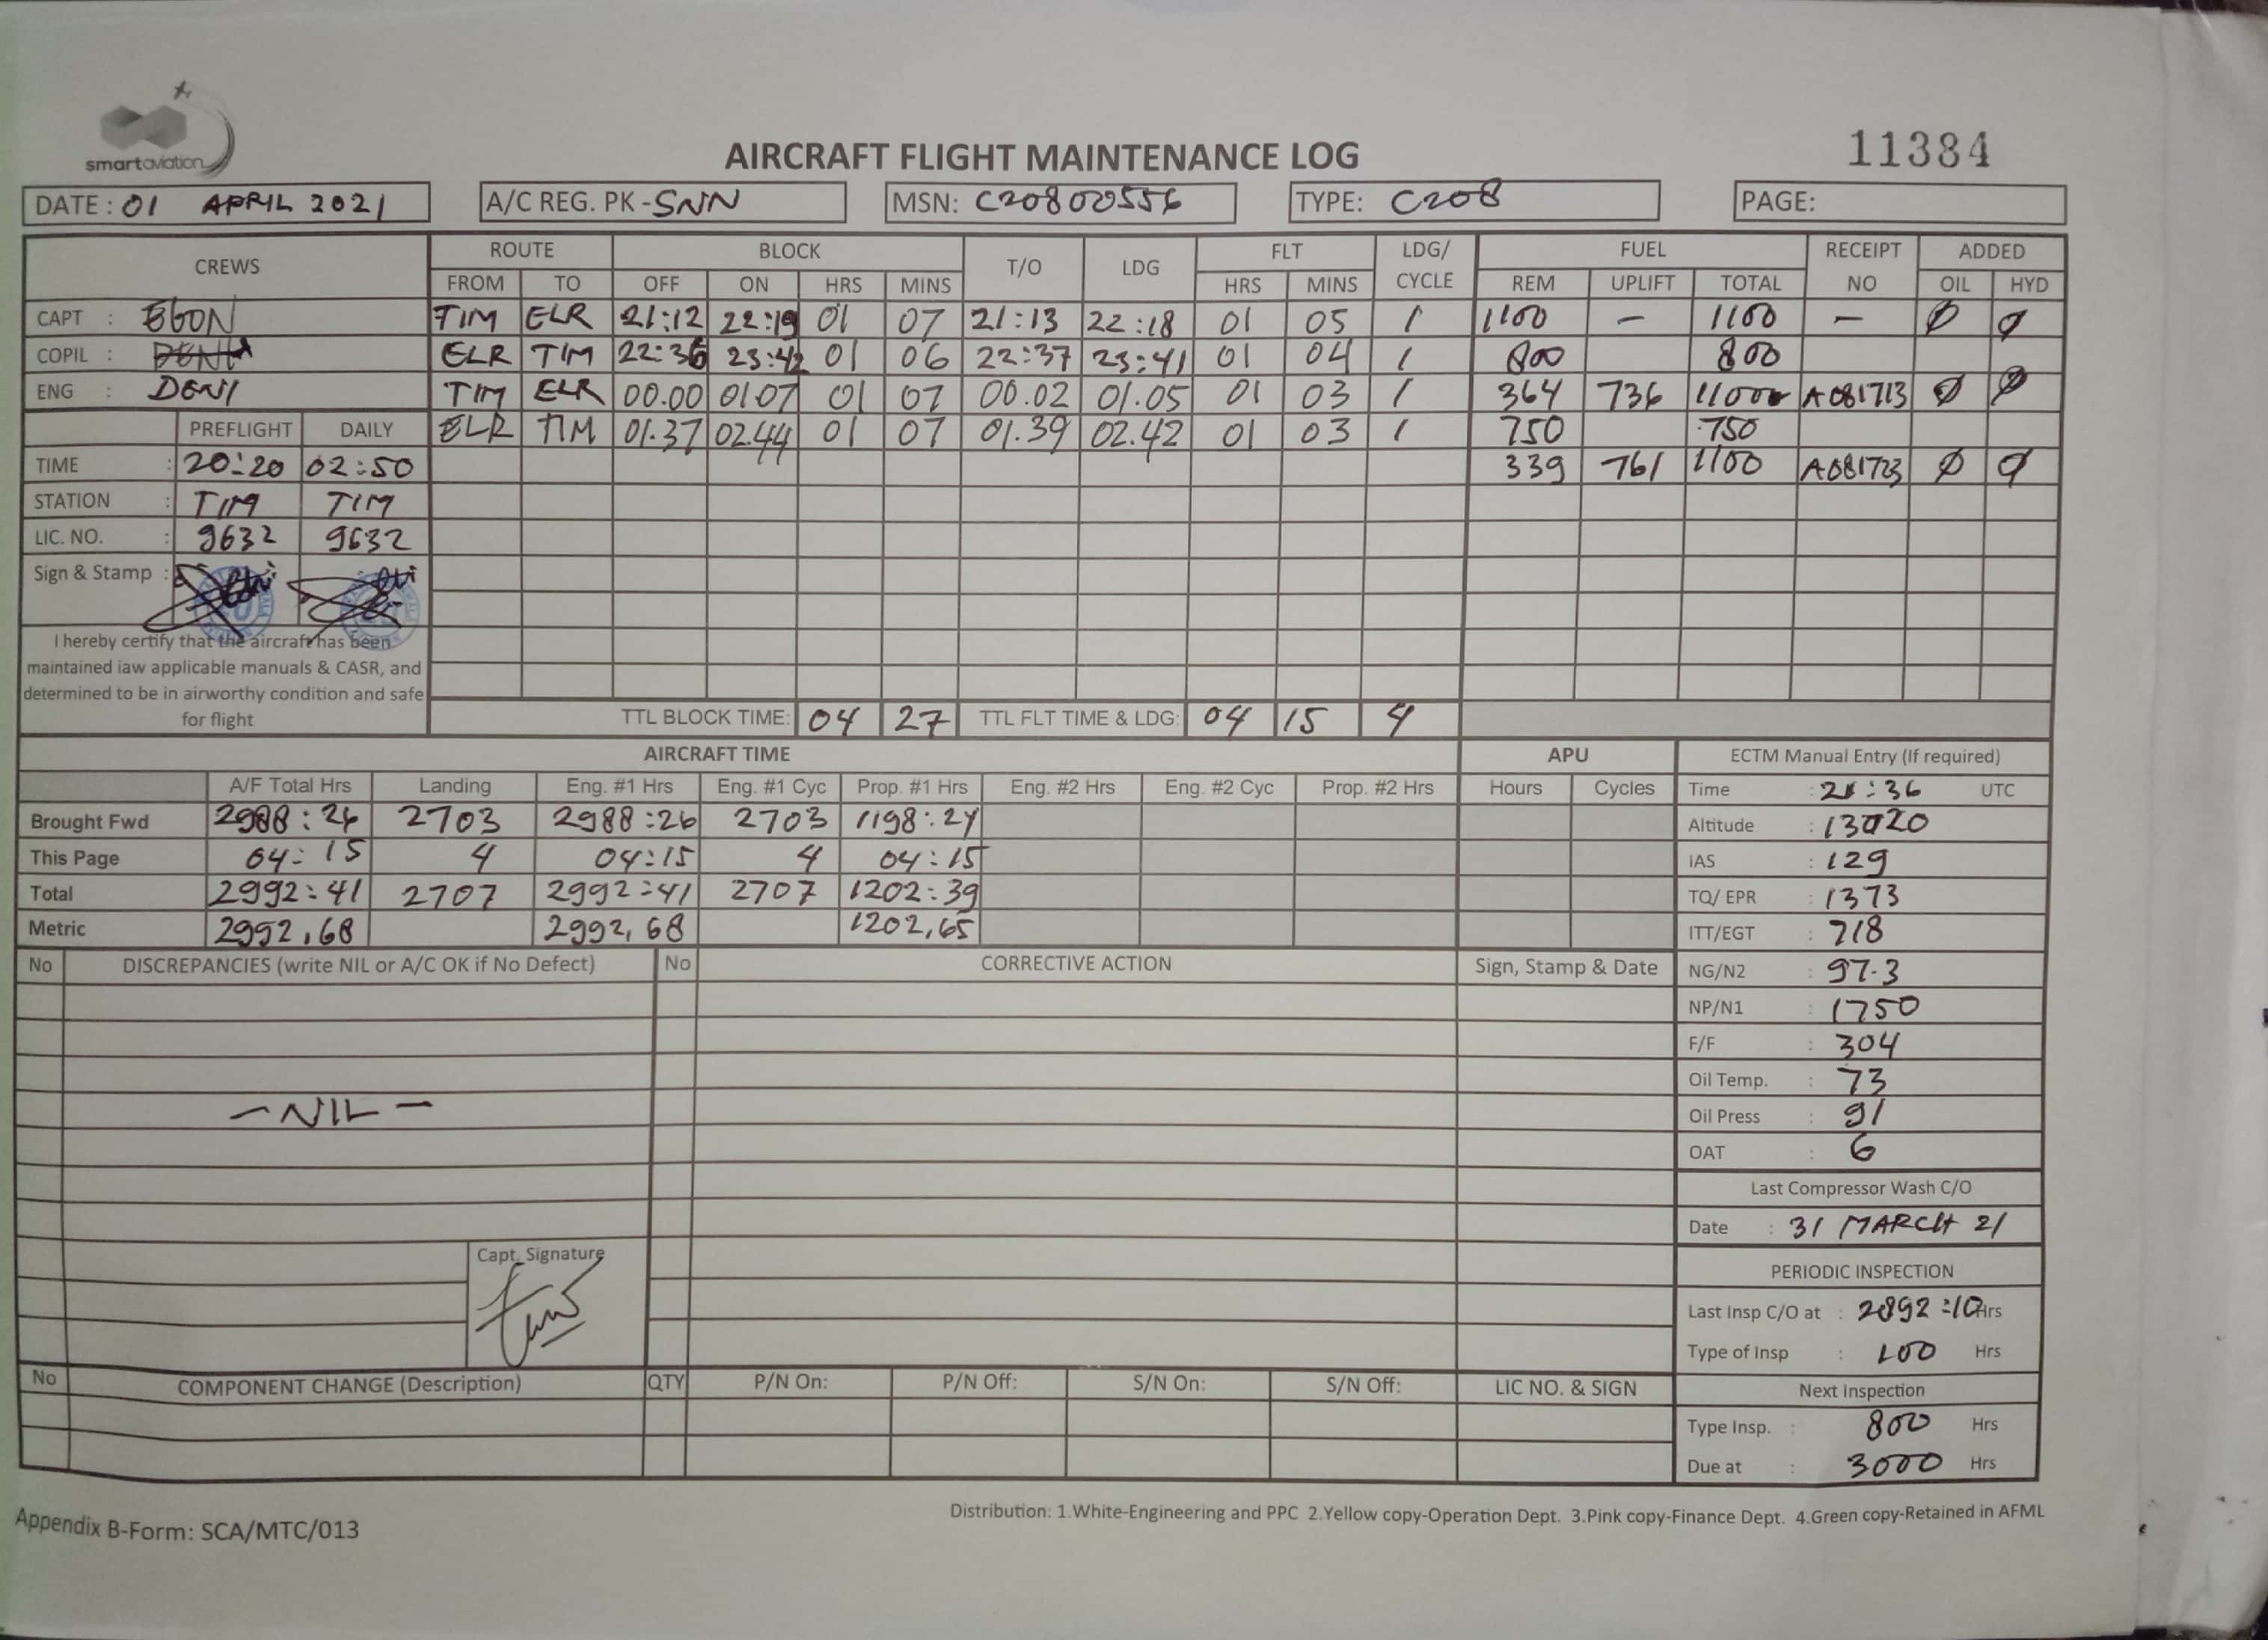 smartaviation
AIRCRAFT FLIGHT MAINTENANCE LOG
11384
DATE : 01 APRIL 2021
A/C REG. PK - SNN
MSN: C20800556
TYPE: C208
PAGE:
CREWS ROUTE BLOCK T/O LDG FLT LDG/ CYCLE FUEL RECEIPT NO ADDED
FROM TO OFF ON HRS MINS HRS MINS REM UPLIFT TOTAL OIL HYD
CAPT : EGON TIM ELR 21:12 22:19 01 07 21:13 22:18 01 05 1 1100 - 1100 - Ø Ø
COPIL : DENI ELR TIM 22:36 23:42 01 06 22:37 23:41 01 04 1 800 800
ENG : DENI TIM ELR 00.00 01.07 01 07 00.02 01.05 01 03 1 364 736 1100 A081713 Ø Ø
PREFLIGHT DAILY ELR TIM 01.37 02.44 01 07 01.39 02.42 01 03 1 750 750
TIME : 20:20 02:50 339 761 1100 A081723 Ø Ø
STATION : TIM TIM
LIC. NO. : 9632 9632
Sign & Stamp :
I hereby certify that the aircraft has been
maintained iaw applicable manuals & CASR, and
determined to be in airworthy condition and safe
for flight
TTL BLOCK TIME: 04 27 TTL FLT TIME & LDG: 04 15 4
AIRCRAFT TIME APU
A/F Total Hrs Landing Eng. #1 Hrs Eng. #1 Cyc Prop. #1 Hrs Eng. #2 Hrs Eng. #2 Cyc Prop. #2 Hrs Hours Cycles
Brought Fwd 2988:26 2703 2988:26 2703 1198:24
This Page 04:15 4 04:15 4 04:15
Total 2992:41 2707 2992:41 2707 1202:39
Metric 2992,68 2992,68 1202,65
ECTM Manual Entry (If required)
Time : 21:36 UTC
Altitude : 13020
IAS : 129
TQ/ EPR : 1373
ITT/EGT : 718
NG/N2 : 97.3
NP/N1 : 1750
F/F : 304
Oil Temp. : 73
Oil Press : 91
OAT : 6
Last Compressor Wash C/O
Date : 31 MARCH 21
PERIODIC INSPECTION
Last Insp C/O at : 2892:10 Hrs
Type of Insp : 100 Hrs
Next Inspection
Type Insp. : 800 Hrs
Due at : 3000 Hrs
No DISCREPANCIES (write NIL or A/C OK if No Defect) No CORRECTIVE ACTION Sign, Stamp & Date
- NIL -
Capt. Signature
No COMPONENT CHANGE (Description) QTY P/N On: P/N Off: S/N On: S/N Off: LIC NO. & SIGN
Distribution: 1.White-Engineering and PPC 2.Yellow copy-Operation Dept. 3.Pink copy-Finance Dept. 4.Green copy-Retained in AFML
Appendix B-Form: SCA/MTC/013